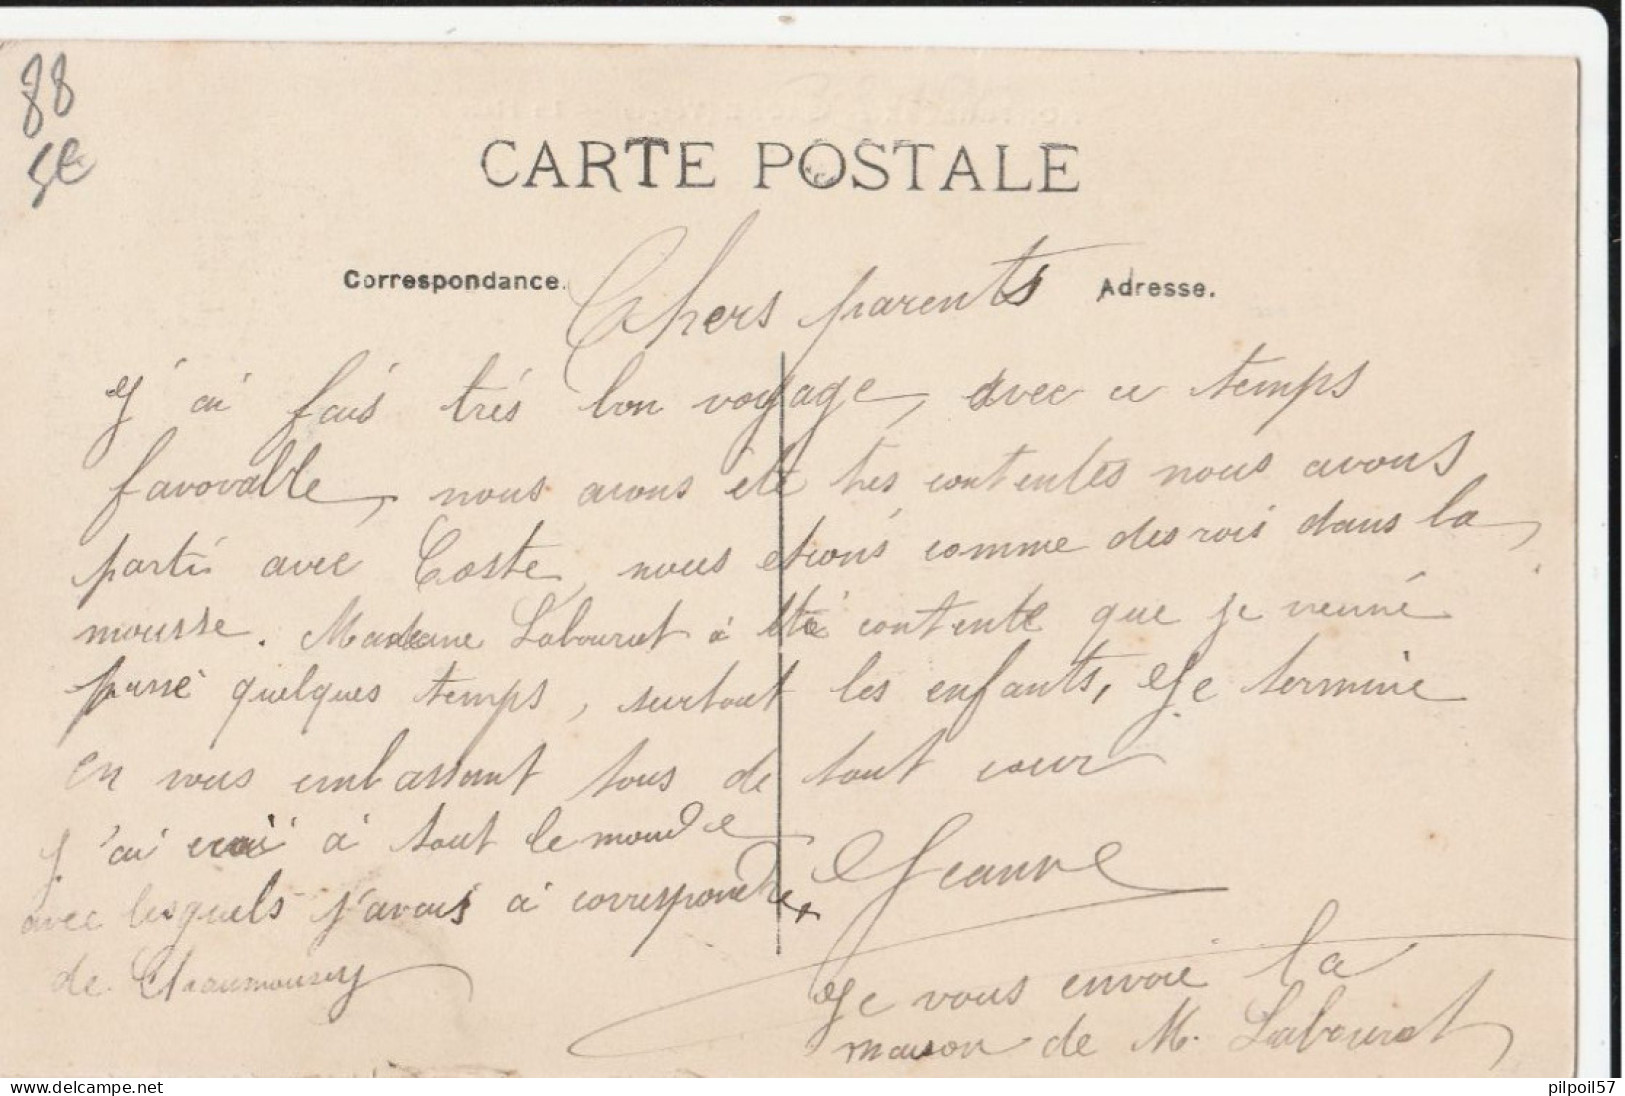 88
5e
CARTE POSTALE
Correspondance.
Adresse.
Chers parents
J'ai fais très bon voyage, avec ce temps
favorable, nous avons été très contentes nous avons
parti avec Coste, nous etions comme des rois dans la
mousse. Madame Labourot à été contente que je venné
passé quelques temps, surtout les enfants, Je terminé
en vous embrassant tous de tout cœur
Jeanne
j'ai ecrai à tout le monde
avec lesquels j'avais à correspondre,
de Chaumousey
Je vous envoie la
maison de M. Labourot
www.delcampe.net
pilpoil57